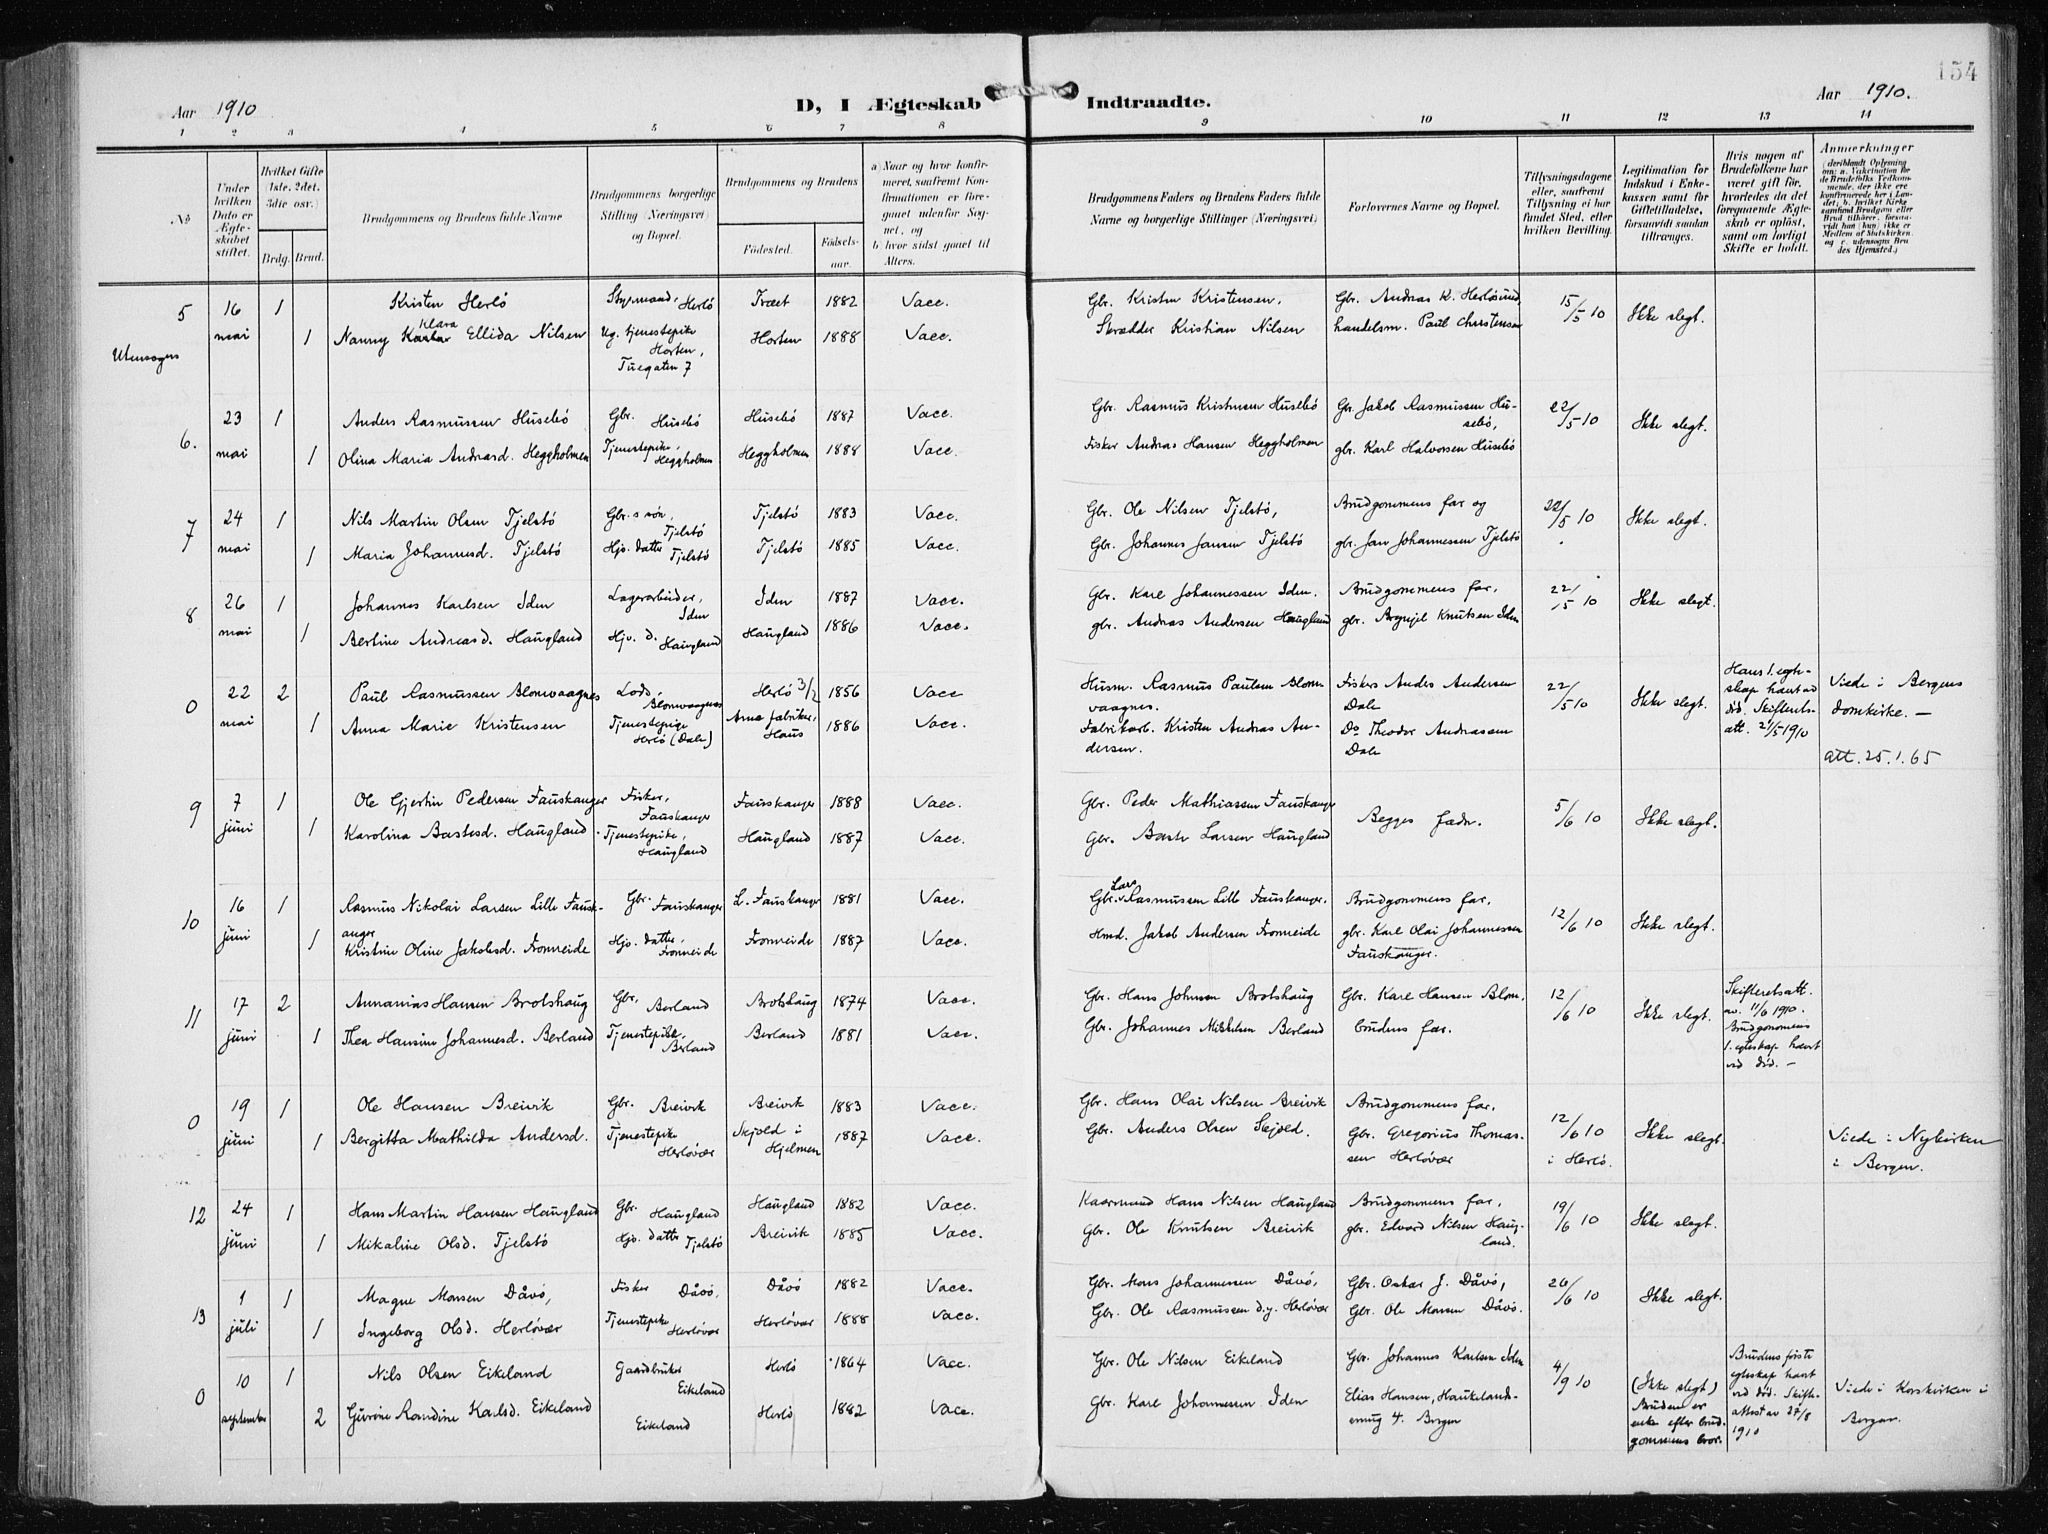 154
Aar 1910
D, I Ægteskab Indtraadte.
Aar 1910.
1 2 3 4 5 6 7 8 9 10 11 12 13 14
No
Under hvilken Dato er Ægteskabet stiftet.
Hvilket Gifte (1ste, 2det, 3die osv.)
Brdg. Brud.
Brudgommens og Brudens fulde Navne
Brudgommens borgerlige Stilling (Næringsvei) og Bopæl.
Brudgommens og Brudens
Fødested. Fødselsaar.
a) Naar og hvor konfirmeret, saafremt Konfirmationen er foregaaet udenfor Sognet, og
b) hvor sidst gaaet til Alters.
Brudgommens Faders og Brudens Faders fulde Navne og borgerlige Stillinger (Næringsvei)
Forlovernes Navne og Bopæl.
Tillysningsdagene eller, saafremt Tillysning ei har fundet Sted, efter hvilken Bevilling.
Legitimation for Indskud i Enkekassen samt for Giftetilladelse, forsaavidt saadan tiltrænges.
Hvis nogen af Brudefolkene har været gift før, hvorledes da det foregaaende Ægteskab er opløst, samt om lovligt Skifte er holdt.
Anmærkninger
5 16 mai 1 Kristen Herlö Styrmand, Herlö Træet 1882 Vacc. Gbr. Kristen Kristensen, Gbr. Andreas K. Herlösund, 15/5 10 Ikke slegt.
Utensogns 1 Nanny Klara Ellida Nilsen Ug. tjenestepike Horten, Tuegaten 7 Horten 1888 Vacc. Skrædder Kristian Nilsen handelsm. Paul Christensen
6. 23 mai 1 Anders Rasmussen Husebö Gbr. Husebö Husebö 1887 Vacc. Gbr. Rasmus Kristensen Husebö Gbr. Jakob Rasmussen Husebö, 22/5 10 Ikke slegt.
1 Olina Maria Andreasd. Heggholmen Tjenestepike, Heggholmen Heggholmen 1888 Vacc. Fisker Andreas Hansen Heggholmen gbr. Karl Halvorsen Husebö
7 24 mai 1 Nils Martin Olsen Tjelstö Gbr.s sön, Tjelstö Tjelstö 1883 Vacc. Gbr. Ole Nilsen Tjelstö, Brudgommens far og 22/5 10 Ikke slegt.
1 Maria Johannesd. Tjelstö Hjv. datter Tjelstö Tjelstö 1885 Vacc. Gbr. Johannes Jansen Tjelstö gbr. Jan Johannessen Tjelstö
8 26 mai 1 Johannes Karlsen Iden Lagerarbeider, Iden Iden 1887 Vacc. Gbr. Karl Johannessen Iden. Brudgommens far, 22/5 10 Ikke slegt.
1 Bertine Andreasd. Haugland Hjv. d. Haugland Haugland 1886 Vacc. gbr. Andreas Andersen Haugland gbr. Brynjel Knutsen Iden
0 22 mai 2 Paul Rasmussen Blomvaagnes Lods, Blomvaagnes Herlö 3/2 1856 Vacc Husm. Rasmus Paulsen Blomvaagnes. Fisker Anders Andersen Dale 22/5 10 Ikke slegt. Hans 1. egteskap hævet ved död. Skifteretsatt. 21/5 1910 Viede i Bergens domkirke. —
1 Anna Marie Kristensen Tjenestepige Herlö (Dale) Arne fabriker, Haus 1886 Vacc. Fabrikarb. Kristen Andreas Andersen. Do Theodor Andreassen Dale att. 25.1.65
9 7 juni 1 Ole Gjertin Pedersen Fauskanger Fisker, Fauskanger Fauskanger 1888 Vacc. Gbr. Peder Mathiassen Fauskanger Begges fædre. 5/6 10 Ikke slegt.
1 Karolina Bastesd. Haugland Tjenestepike, Haugland Haugland 1887 Vacc. Gbr. Baste Larsen Haugland
10 16 juni 1 Rasmus Nikolai Larsen Lille Fauskanger Gbr. Fauskanger L. Fauskanger 1881 Vacc. Gbr. Lars Rasmussen Lille Fauskanger. Brudgommens far, 12/6 10 Ikke slegt.
1 Kristine Oline Jakobsd. Fromreide Hjv. datter, Fromreide Fromreide 1887 Vacc. Hmd. Jakob Andersen Fromreide gbr. Karl Olai Johannessen Fauskanger.
11 17 juni 2 Annanias Hansen Brotshaug Gbr. Berland Brotshaug 1874 Vacc. Gbr. Hans Johnsen Brotshaug Gbr. Karl Hansen Blom, 12/6 10 Ikke slegt. Skifteretsatt. av. 11/6 1910. Brudgommens 1. egteskap hævet ved död. —
1 Thea Hansine Johannesd. Berland Tjenestepike Berland Berland 1881 Vacc. Gbr. Johannes Mikkelsen Berland brudens far.
0 19 juni 1 Ole Hansen Breivik Gbr. Breivik Breivik 1883 Vacc. Gbr. Hans Olai Nilsen Breivik Brudgommens far, 12/6 10 i Herlö. Ikke slegt.
1 Bergitta Mathilda Andersd. Tjenestepike Herlövær Skjold i Hjelmen 1887 Vacc. Gbr. Anders Olsen Skjold. Gbr. Gregorius Thomassen Herlövær Viede i Nykirken i Bergen.
12 24 juni 1 Hans Martin Hansen Haugland Gbr. Haugland Haugland 1882 Vacc. Kaarmand Hans Nilsen Haugland Brudgommens far, 19/6 10 Ikke slegt.
1 Mikaline Olsd. Tjelstö Hjv. datter Tjelstö Breivik 1885 Vacc. Gbr. Ole Knutsen Breivik gbr. Edvard Nilsen Haugland.
13 1 juli 1 Magne Monsen Dåvö, Fisker Dåvö. Dåvö 1882 Vacc. Gbr. Mons Johannessen Dåvö, Gbr. Oskar J. Dåvö, 26/6 10 Ikke slegt.
1 Ingeborg Olsd. Herlövær Tjenestepike Herlövær Herlövær 1888 Vacc. Gbr. Ole Rasmussen d.y. Herlövær Gbr. Ole Monsen Dåvö.
0 10 september 1 Nils Olsen Eikeland Gaardbruker Eikeland Herlö 1864 Vacc. Gbr. Ole Nilsen Eikeland Gbr. Johannes Karlsen Iden 4/9 10 (Ikke slegt) Bruden er enke efter brudgommens bror. Brudens første egteskap hævet ved död. Skifteattest av 27/8 1910 Viede i Korskirken i Bergen.
2 Gurine Randine Karlsd. Eikeland Eikeland Herlö 1882 Vacc. Gbr. Karl Johannessen Iden Elias Hansen, Haukelandsmug 4. Bergen